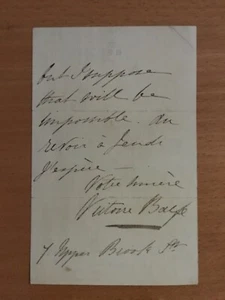 but I suppose
that will be
impossible. au
revoir à Jeudi
j'espère —
Votre sincère
Victoire Balfe
7 Upper Brook St